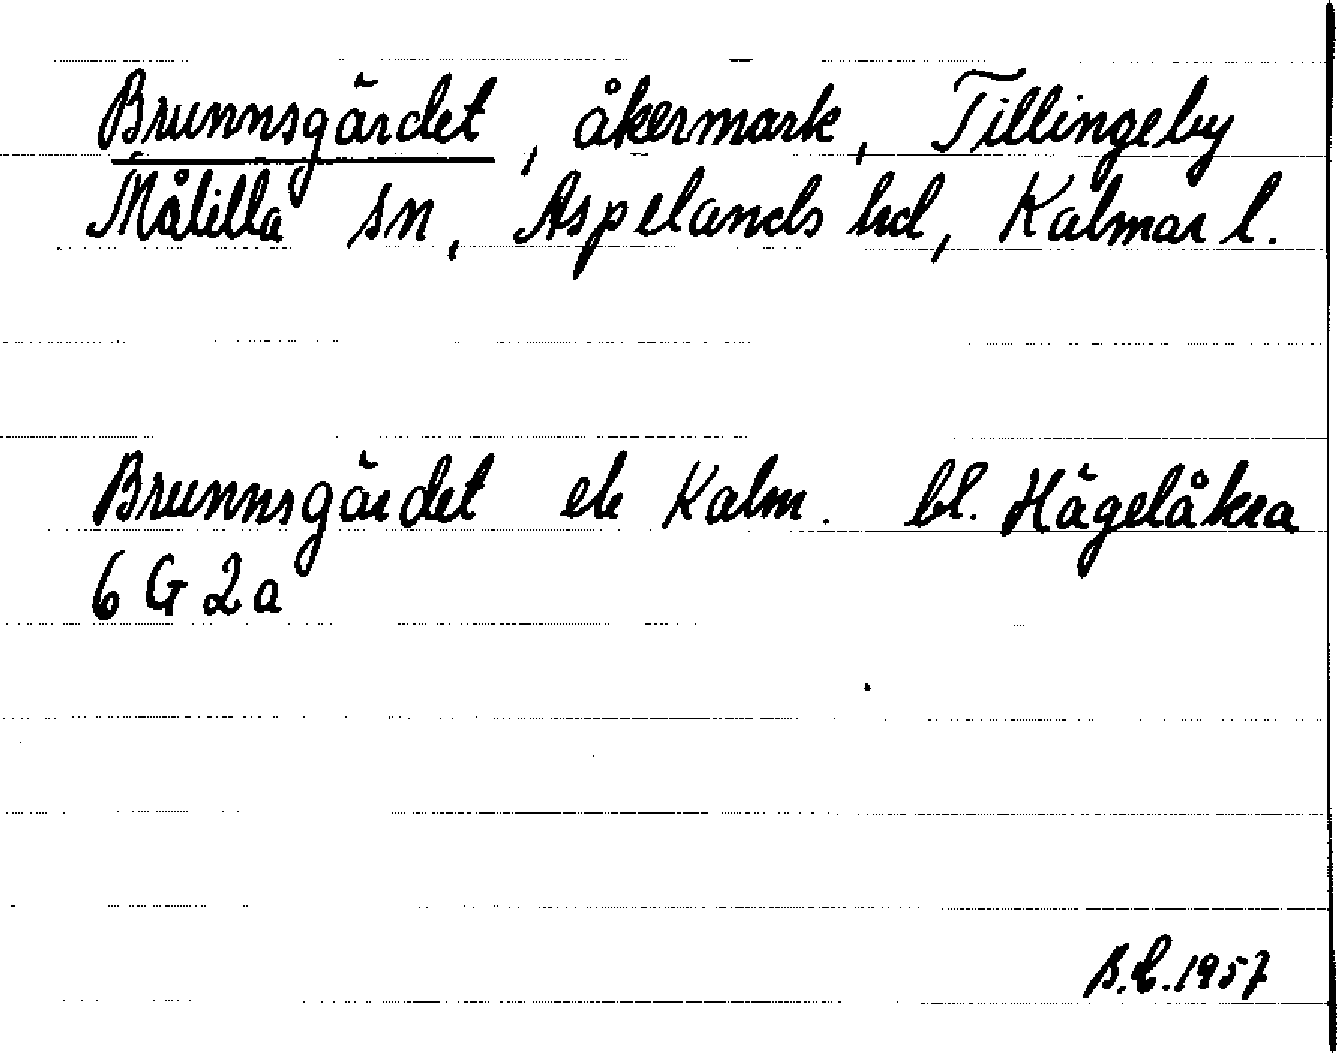 Brunnsgärdet, åkermark, Tillingeby
Målilla sn, Aspelands hd, Kalmar l.
Brunnsgärdet ek Kalm. bl. Hägelåkra
6 G 2a
B.E. 1957